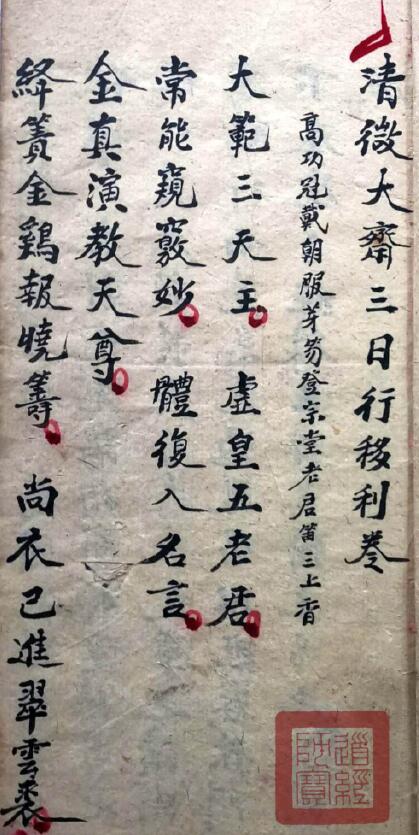 清微大齋三日行移利卷
高功冠戴朝服芽笏登宗堂老君前三上香
大範三天主 虛皇五老君
常能窺竅妙 體復入名言
金真演教天尊
絳簀金鷄報曉籌 尚衣已進翠雲裘
道經師寶